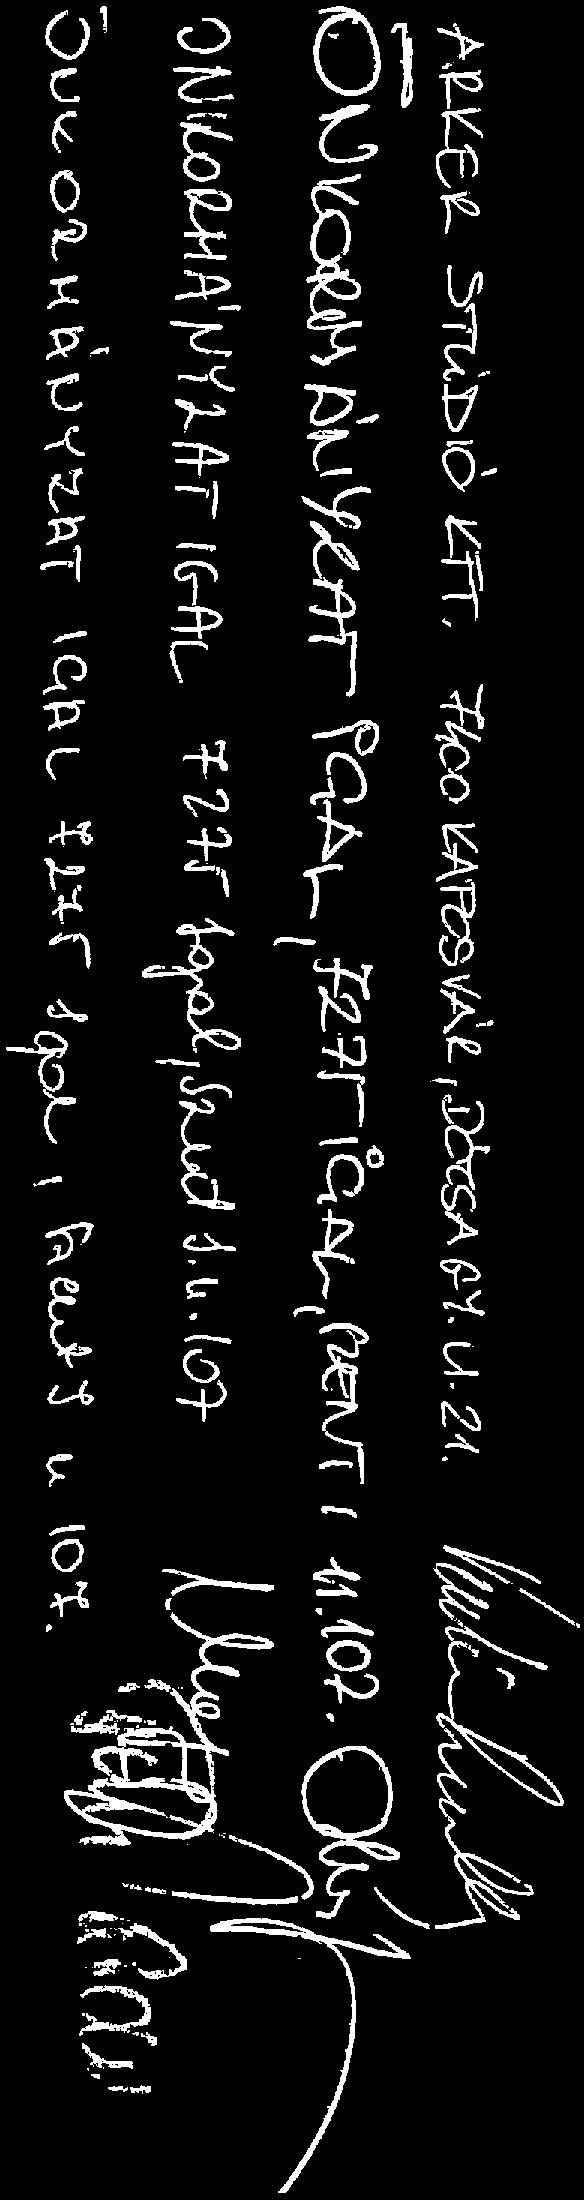 ARKER STÚDIÓ KFT. 7400 KAPOSVÁR, DÓZSA GY. U. 21.
ÖNKORMÁNYZAT IGAL, 7275 IGAL, SZENT I U. 107.
ÖNKORMÁNYZAT IGAL 7275 Igal, Szent I. u. 107
ÖNKORMÁNYZAT IGAL 7275 Igal, Szent I u 107.